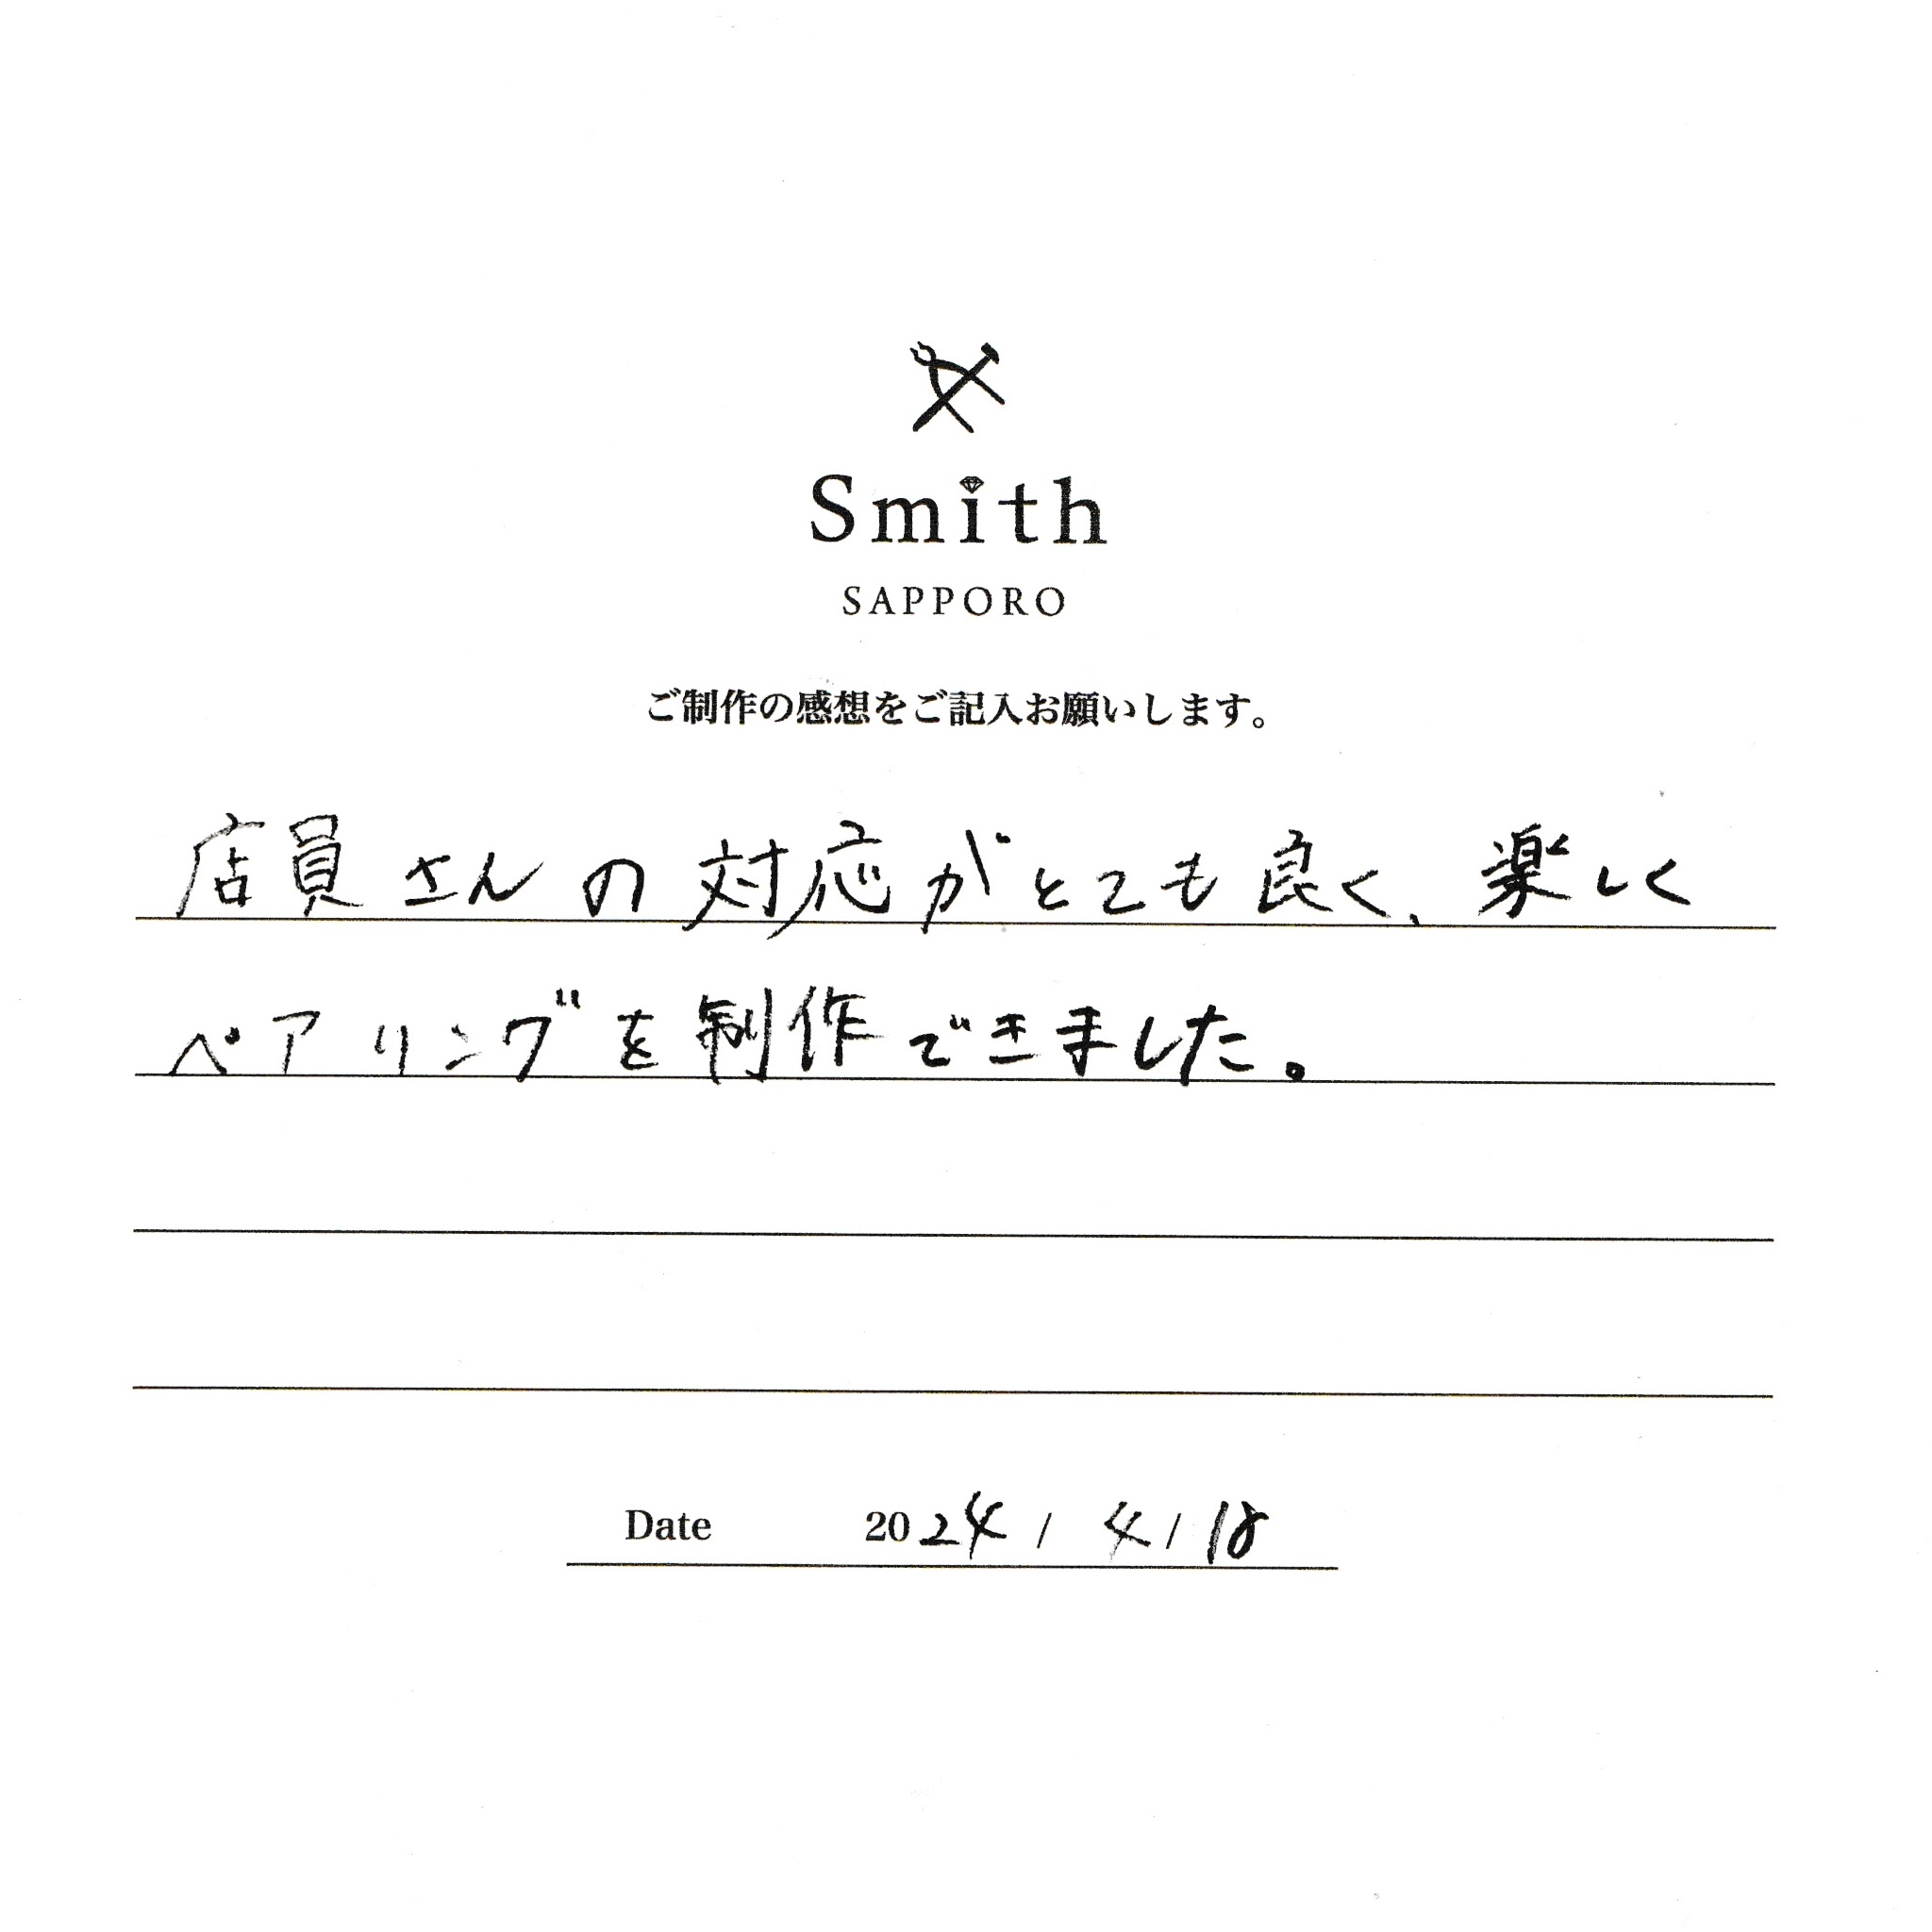 Smith
SAPPORO
ご制作の感想をご記入お願いします。
店員さんの対応がとても良く、楽しく
ペアリングを制作できました。
Date 2024/4/18